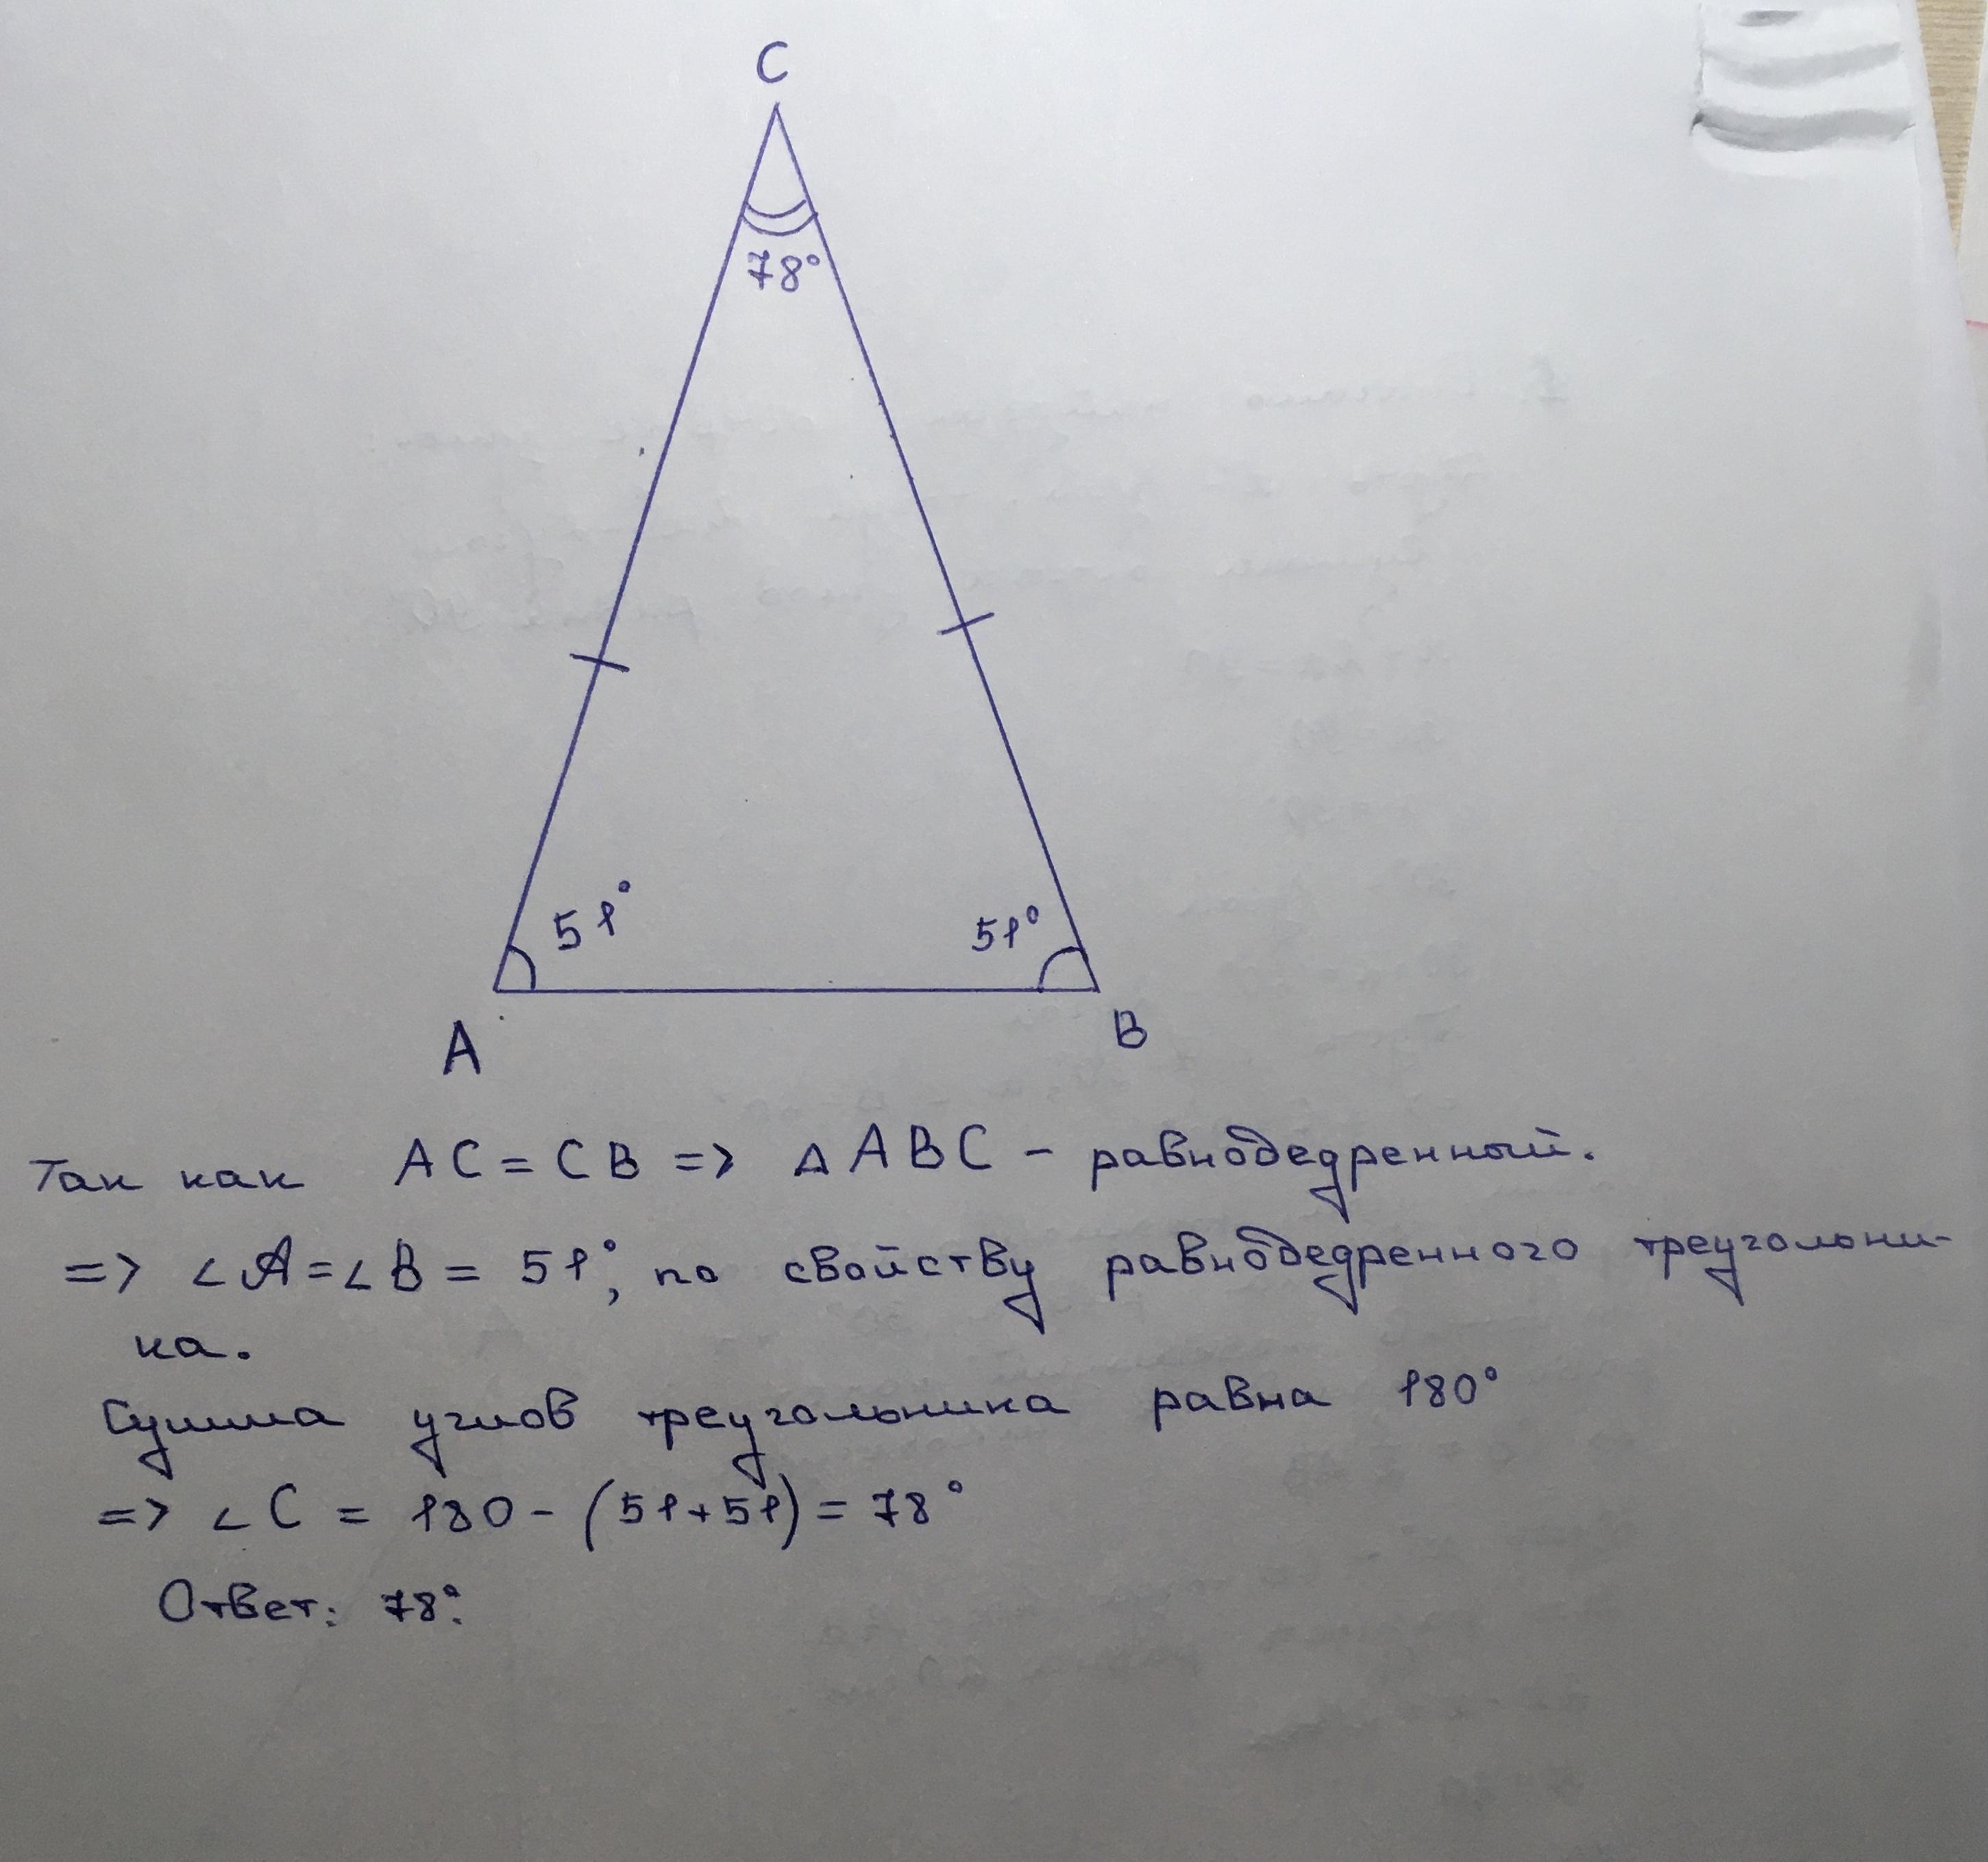 C
78°
51°
51°
A
B
Так как AC = CB => △ABC – равнобедренный.
=> ∠A=∠B = 51°, по свойству равнобедренного треугольни-
ка.
Сумма углов треугольника равна 180°
=> ∠C = 180 - (51+51) = 78°
Ответ: 78°.